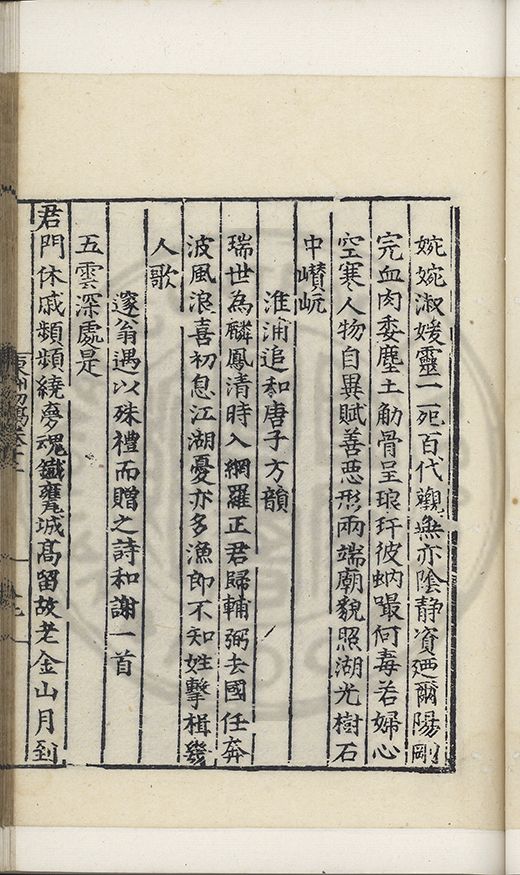 婉婉淑媛靈一死百代觀無亦陰静資廼爾陽剛
完血肉委塵土觔骨呈琅玕彼蚋嘬何毒若婦心
空寒人物自異賦善惡形兩端廟貌照湖光樹石
中巑岏
淮浦追和唐子方韻
瑞世為麟鳳清時入網羅正君歸輔弼去國任奔
波風浪喜初息江湖憂亦多漁郎不知姓擊楫幾
人歌
邃翁遇以殊禮而贈之詩和謝一首
五雲深處是
君門休戚頻頻繞夢魂鐵甕城髙留故老金山月到